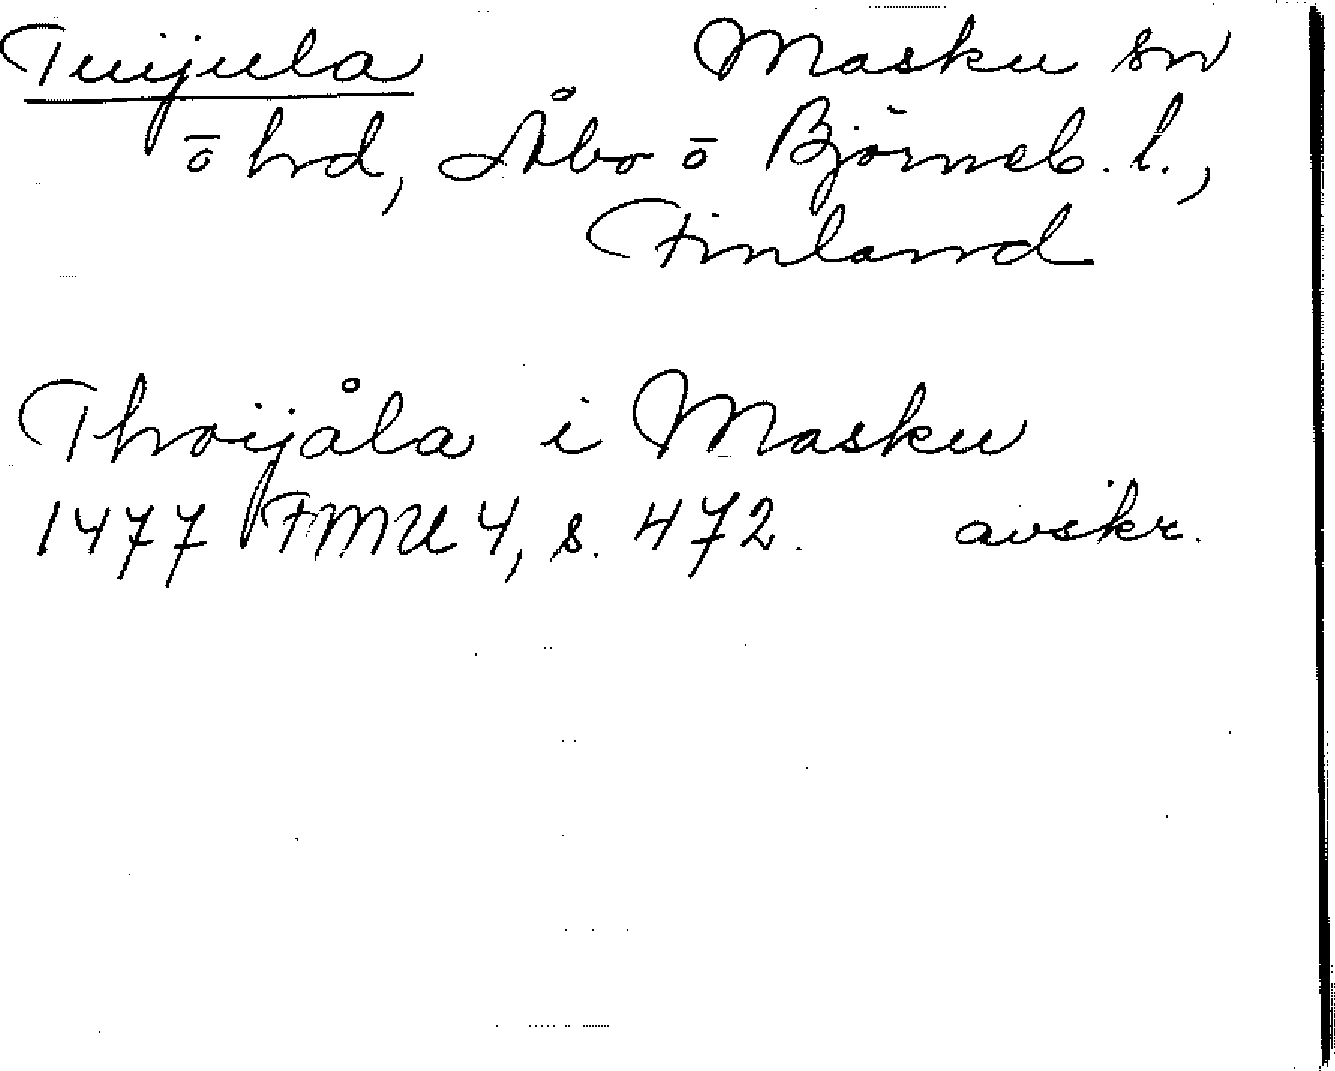 Tuijula Masku sn
ō hrd, Åbo ō Björneb. l.,
Finland
Thoijåla i Masku
1477 FMU 4, s. 472. avskr.